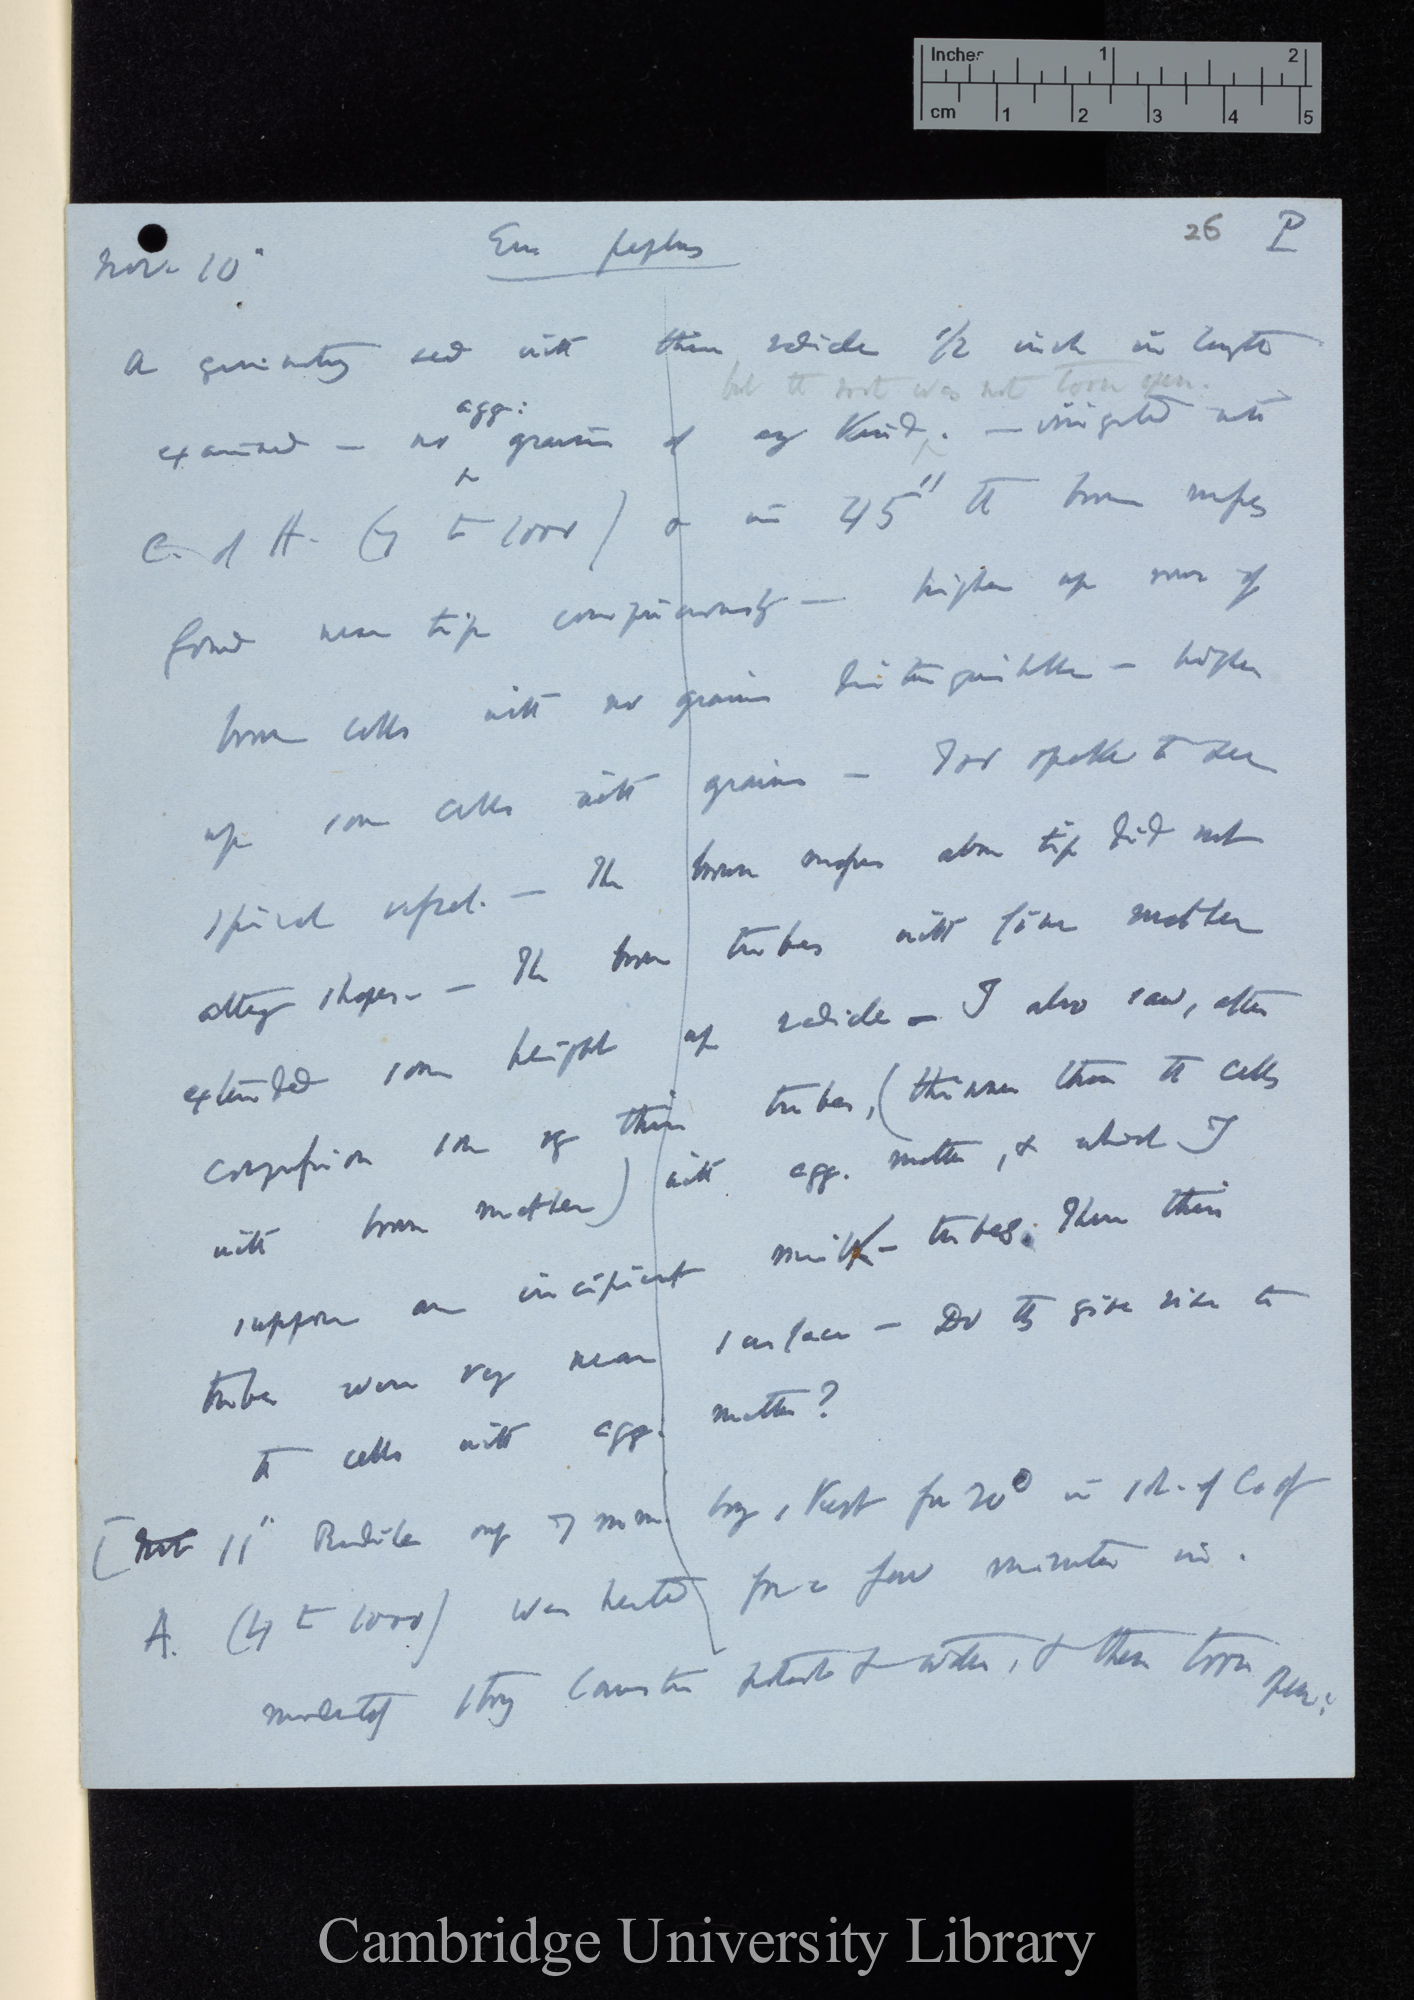 Inches 1 2
cm 1 2 3 4 5
26 P
Nov. 10" Eu. peplus
A germinating seed with thin radicle 1/2 inch in length
but the root was not torn open.
agg:
examined — no ^ grains of any kind ^. — irrigated with
C. of A. (7 to 1000) & in 45" the brown masses
found near tip conspicuously — higher up rows of
brown cells with no grains distinguishable — higher
up some cells with grains — Too opake to see
spiral vessel. — The brown masses above tip did not
alter shapes. — The brown tubes with fine matter
extended some height up radicle — I also saw, after
compression some vy thin tubes, (thinner than the cells
with brown matter) with agg. matter, & which I
suppose are incipient milk-tubes. These thin
tubes were very near surface — Do they give rise to
the cells with agg. matter?
[Nov 11" Radicle only 7 mm. long, kept for 20 in sol. of C. of
A. (7 to 1000) was heated for a few minutes in
moderately strong caustic potash & water, & then torn open;
Cambridge University Library